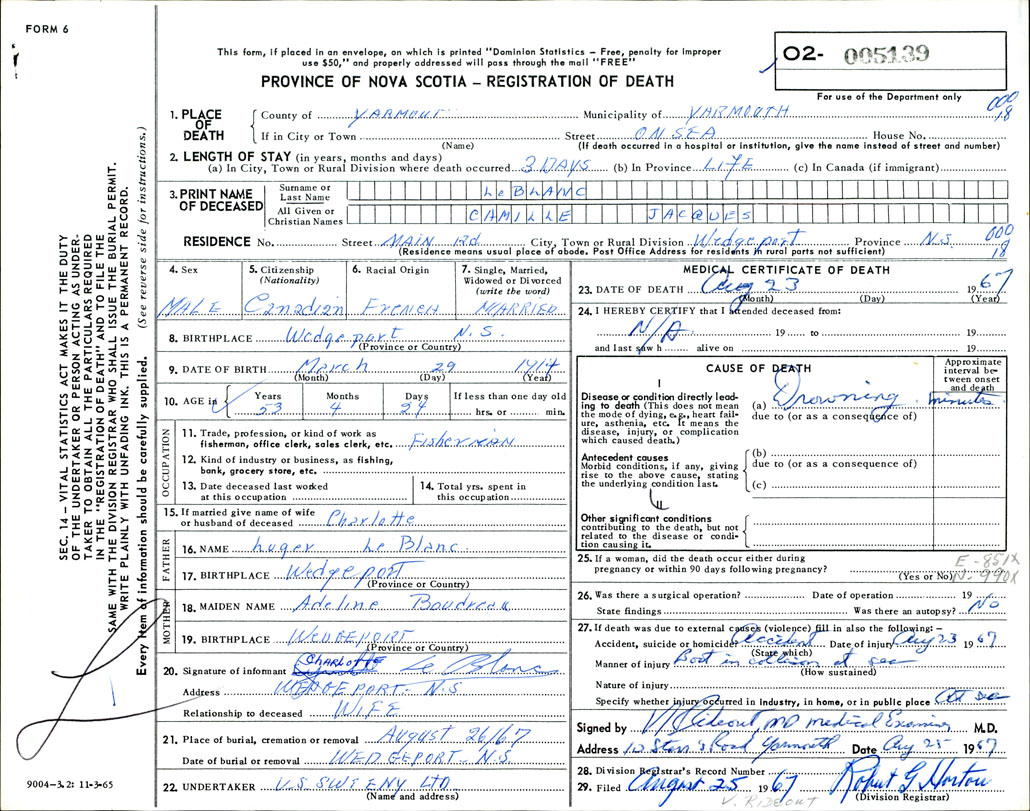 FORM 6
This form, if placed in an envelope, on which is printed "Dominion Statistics – Free, penalty for improper
use $50," and properly addressed will pass through the mail "FREE"
PROVINCE OF NOVA SCOTIA – REGISTRATION OF DEATH
O2- 005139
For use of the Department only
000
18
1. PLACE OF DEATH
County of YARMOUT Municipality of YARMOUTH
If in City or Town Street ON SEA House No.
(Name) (If death occurred in a hospital or institution, give the name instead of street and number)
2. LENGTH OF STAY (in years, months and days)
(a) In City, Town or Rural Division where death occurred 3 DAYS (b) In Province LIFE (c) In Canada (if immigrant)
3. PRINT NAME OF DECEASED
Surname or Last Name LeBLANC
All Given or Christian Names CAMILLE JACQUES
RESIDENCE No. Street MAIN Rd City, Town or Rural Division Wedgeport Province N.S. 000
18
(Residence means usual place of abode. Post Office Address for residents in rural parts not sufficient)
4. Sex
MALE
5. Citizenship
(Nationality)
Canadian
6. Racial Origin
French
7. Single, Married,
Widowed or Divorced
(write the word)
MARRIED
8. BIRTHPLACE Wedgeport N.S.
(Province or Country)
9. DATE OF BIRTH March 29 1914
(Month) (Day) (Year)
10. AGE in Years Months Days If less than one day old
53 4 24 hrs. or min.
OCCUPATION
11. Trade, profession, or kind of work as
fisherman, office clerk, sales clerk, etc. Fisherman
12. Kind of industry or business, as fishing,
bank, grocery store, etc.
13. Date deceased last worked
at this occupation
14. Total yrs. spent in
this occupation
15. If married give name of wife
or husband of deceased Charlotte
FATHER
16. NAME Luger Le Blanc
17. BIRTHPLACE Wedgeport
(Province or Country)
MOTHER
18. MAIDEN NAME Adeline Boudreau
19. BIRTHPLACE WEDGEPORT
(Province or Country)
20. Signature of informant Charlotte Le Blanc
Address WEDGEPORT - N.S
Relationship to deceased WIFE
21. Place of burial, cremation or removal August 26/67
Date of burial or removal WEDGEPORT - N.S
22. UNDERTAKER U.S. SWEENY LTD.
(Name and address)
MEDICAL CERTIFICATE OF DEATH
23. DATE OF DEATH Aug 23 1967
(Month) (Day) (Year)
24. I HEREBY CERTIFY that I attended deceased from:
N/A 19 to 19
and last saw h alive on 19
CAUSE OF DEATH
Approximate
interval be-
tween onset
and death
I
Disease or condition directly lead-
ing to death (This does not mean
the mode of dying, e.g., heart fail-
ure, asthenia, etc. It means the
disease, injury, or complication
which caused death.)
(a) Drowning minutes
due to (or as a consequence of)
Antecedent causes
Morbid conditions, if any, giving
rise to the above cause, stating
the underlying condition last.
(b)
due to (or as a consequence of)
(c)
II
Other significant conditions
contributing to the death, but not
related to the disease or condi-
tion causing it.
25. If a woman, did the death occur either during
pregnancy or within 90 days following pregnancy?
(Yes or No)
E-851X
N-990X
26. Was there a surgical operation? Date of operation 19
State findings Was there an autopsy? No
27. If death was due to external causes (violence) fill in also the following: –
Accident, suicide or homicide? Accident Date of injury Aug 23 1967
(State which)
Manner of injury Boat in collision at sea
(How sustained)
Nature of injury
Specify whether injury occurred in industry, in home, or in public place At sea
Signed by V Rideout MD medical Examiner M.D.
Address Starr's Road Yarmouth Date Aug 25 1967
28. Division Registrar's Record Number
29. Filed August 25 1967 Robert G Horton
(Division Registrar)
V. RIDEOUT
SEC. 14 – VITAL STATISTICS ACT MAKES IT THE DUTY
OF THE UNDERTAKER OR PERSON ACTING AS UNDER-
TAKER TO OBTAIN ALL THE PARTICULARS REQUIRED
IN THE "REGISTRATION OF DEATH" AND TO FILE THE
SAME WITH THE DIVISION REGISTRAR WHO SHALL ISSUE BURIAL PERMIT.
WRITE PLAINLY WITH UNFADING INK. THIS IS A PERMANENT RECORD.
Every item of information should be carefully supplied. (See reverse side for instructions.)
9004-3.2: 11-3-65